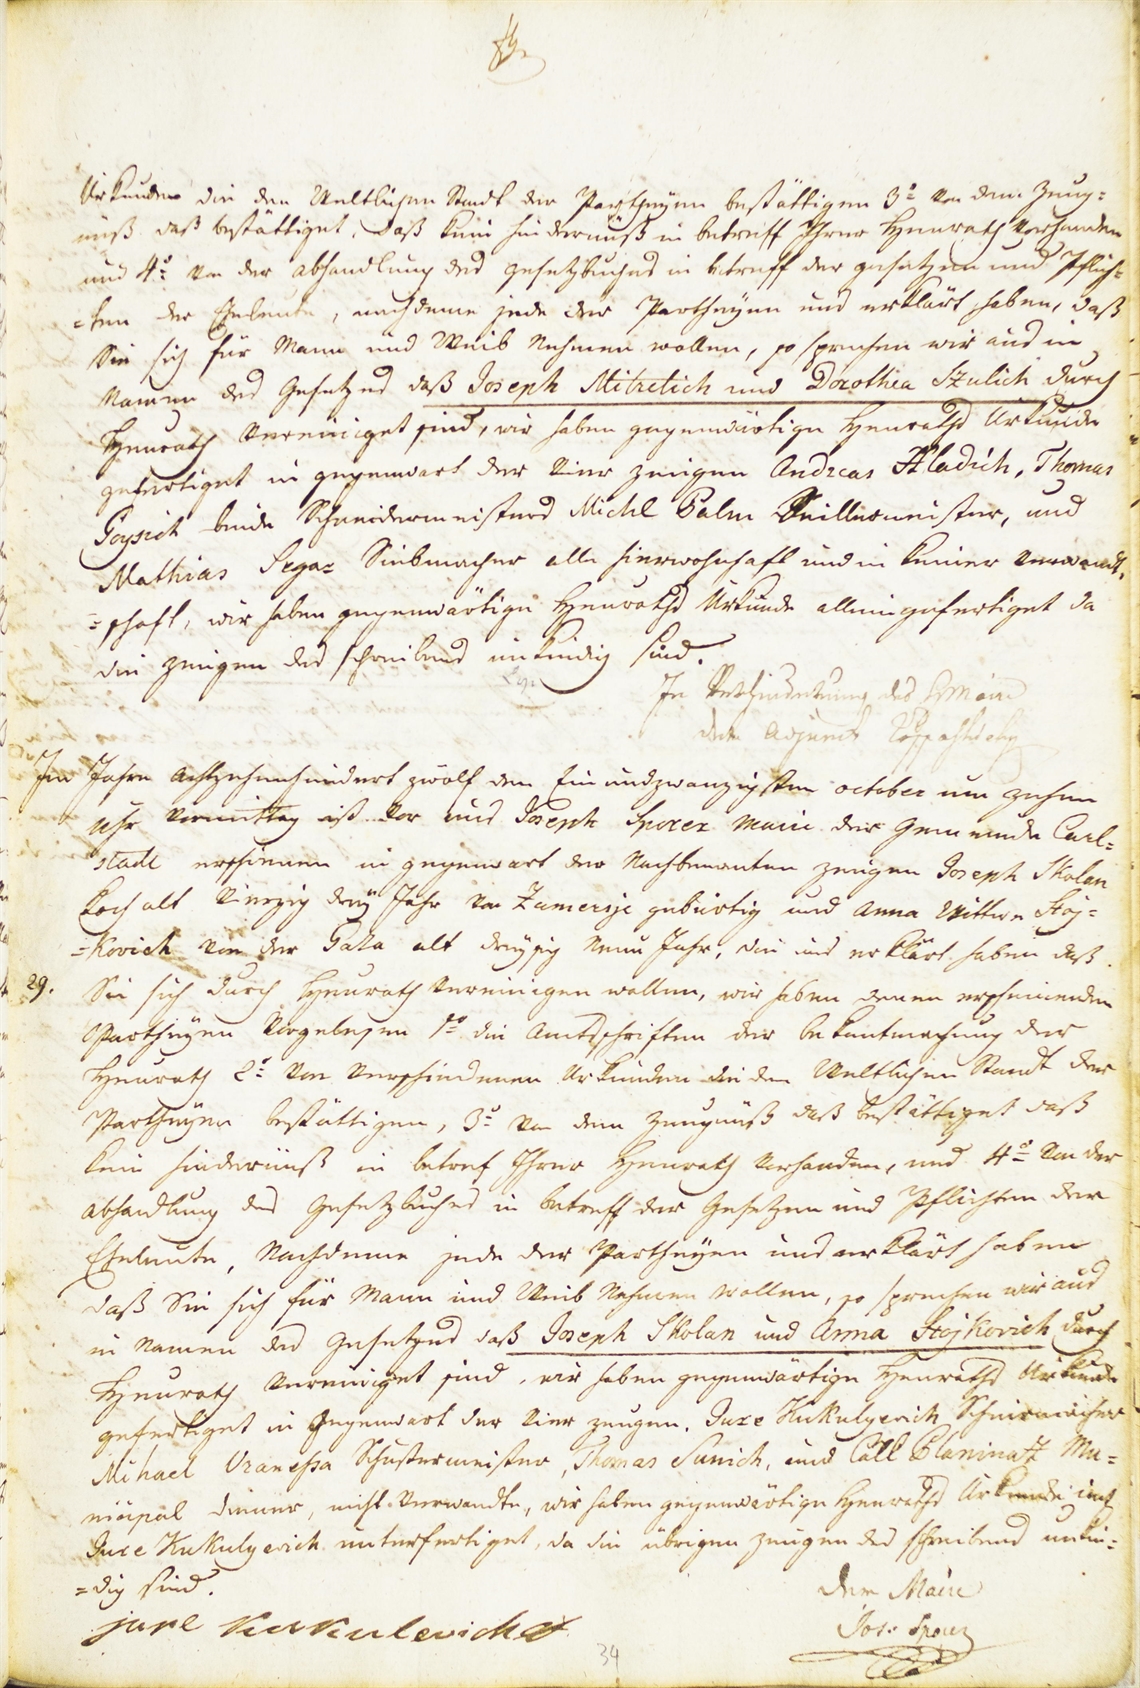 Urkunden die den Weltlichen Standt der Partheyen bestättigen 3o von dem Zeug=
nüß daß bestättiget, daß kein hindernüß in betreff Ihrer Heurath vorhanden
und 4o von der abhandlung des gesetzbuches in betreff der gesetzen und Pflich=
=ten der Eheleute, nachdeme jede der Partheyen uns erklärt haben, daß
Sie sich für Mann und Weib Nehmen wollen, so sprechen wir aus in
Namen des Gesetzes daß Joseph Mitretich und Dorothea Szulich durch
Heurath Vereiniget sind, wir haben gegenwärtige Heuraths Urkunde
gefertiget in gegenwart der Vier zeugen Andreas Hladich, Thomas
Goysich beide Schneidermeisters Michl Palm Seillermeister, und
Mathias Segar Siebmacher alle hierwohnhaft und in keiner Verwandt=
=schaft, wir haben gegenwärtige Heuraths Urkunde allein gefertiget da
die zeugen des schreibens unkündig sind.
In Verhinderung des H Maire
der Adjunct
Im Jahre Achtzehenhundert zwölf den Einundzwanzigsten october um zehen
Uhr Vormittag ist vor uns Joseph Sporer Maire der Gemeinde Carl=
stadt erschienen in gegenwart der Nachbenanten zeugen Joseph Skolan
Koch alt Vierzig drey Jahr von Zamersje gebürtig und Anna Wittwe Stoj=
=kovich von der Gaza alt dreysig Neun Jahr, die uns erklärt haben daß
29. Sie sich durch Heurath Vereinigen wollen, wir haben denen erscheinenden
Partheyen Vorgelesen 1o die Amtsschriften der bekantmachung der
Heurath 2o von Verschiedenen Urkunden die den Weltlichen Standt der
Partheyen bestättigen, 3o von dem Zeugnüß daß bestättiget daß
kein hindernüß in betref Ihrer Heurath Vorhanden, und 4o von der
abhandlung des Gesetzbuches in betreff der Gesetzen und Pflichten der
Eheleute, Nachdeme jede der Partheyen uns erklärt haben
daß Sie sich für Mann und Weib Nehmen wollen, so sprechen wir aus
in Namen des Gesetzes daß Joseph Skolan und Anna Stojkovich durch
Heurath Vereiniget sind, wir haben gegenwärtige Heuraths Urkunde
gefertiget in Gegenwart der Vier zeugen, Jure Kukulyevich
Mihael Vranessa Schustermeister, Thomas Sunich, und Call Planinatz Mu=
nicipal diener, nicht Verwandte, wir haben gegenwärtige Heuraths Urkunde mit
Jure Kukulyevich unterfertiget, da die übrigen zeugen des schreibens unkün=
=dig sind.
Der Maire
jure Kukulevich
Jos: Sporer
34